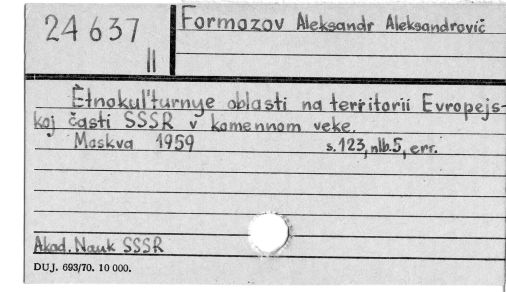 24637
II
Formozov Aleksandr Aleksandrovič
Ètnokul'turnye oblasti na territorii Evropejs-
koj časti SSSR v kamennom veke.
Moskva 1959 s.123, nlb.5, err.
Akad. Nauk SSSR
DUJ. 693/70. 10 000.